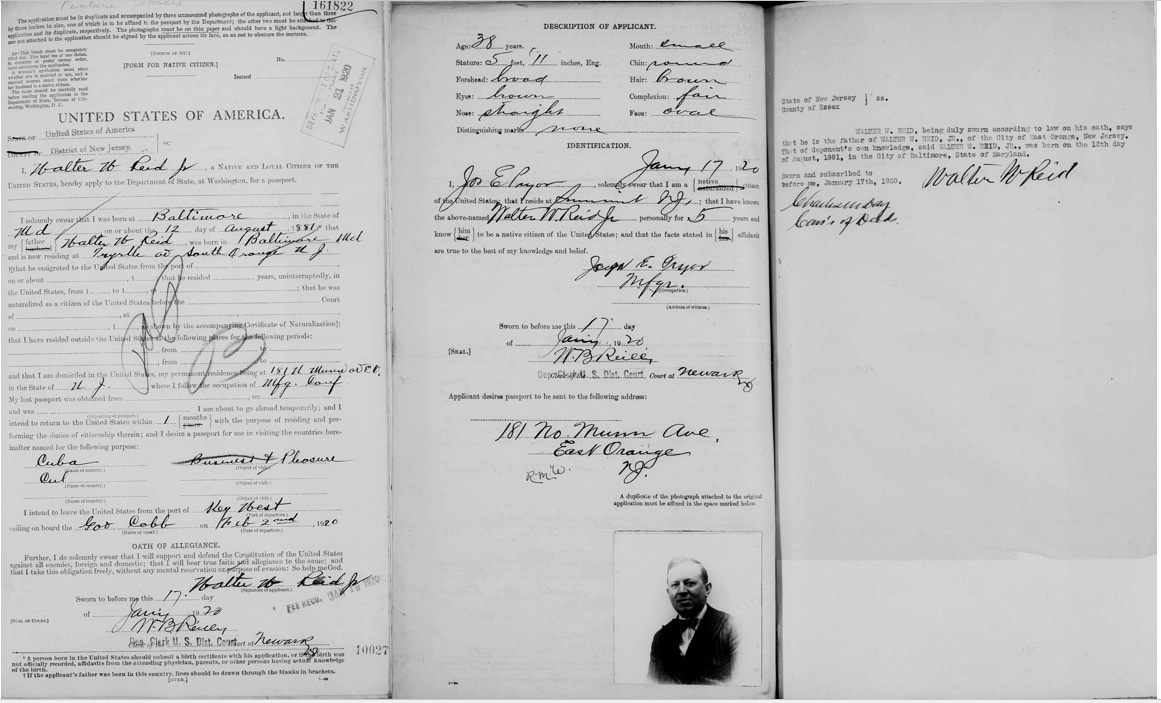 161822
The application must be in duplicate and accompanied by three unmounted photographs of the applicant, not larger than three
by three inches in size, one of which is to be affixed to the passport by the Department; the other two must be attached to the
application and its duplicate, respectively. The photographs must be on thin paper and should have a light background. The
one not attached to the application should be signed by the applicant across its face, so as not to obscure the textures.
[FORM FOR NATIVE CITIZEN.]
No.
Issued
JAN 21 1920
WASHINGTON
UNITED STATES OF AMERICA.
STATE OF United States of America
COUNTY OF District of New Jersey. ss:
I, Walter W Reid Jr, a NATIVE AND LOYAL CITIZEN OF THE
UNITED STATES, hereby apply to the Department of State, at Washington, for a passport.
I solemnly swear that I was born at Baltimore, in the State of
Md on or about the 12 day of August, 1881 that
my father husband Walter W Reid, was born in Baltimore Md
and is now residing at Tyrytle av South Orange N J.
[that he emigrated to the United States from the port of
on or about , 1 ; that he resided years, uninterruptedly, in
the United States, from 1 to 1 , at ; that he was
naturalized as a citizen of the United States before the Court
of , at ,
on , 1 , as shown by the accompanying Certificate of Naturalization];
that I have resided outside the United States at the following places for the following periods:
, from to
, from to
and that I am domiciled in the United States, my permanent residence being at 181 N Munn av E.O.
in the State of N J. where I follow the occupation of Mfg. Conf
My last passport was obtained from , on
and was I am about to go abroad temporarily; and I
(Disposition of passport.)
intend to return to the United States within 1 months years with the purpose of residing and per-
forming the duties of citizenship therein; and I desire a passport for use in visiting the countries here-
inafter named for the following purpose:
Cuba Business & Pleasure
(Name of country.) (Object of visit.)
(Name of country.) (Object of visit.)
(Name of country.) (Object of visit.)
I intend to leave the United States from the port of Key West
(Port of departure.)
sailing on board the Gov Cobb on Feb 2nd, 1920
(Name of vessel.) (Date of departure.)
OATH OF ALLEGIANCE.
Further, I do solemnly swear that I will support and defend the Constitution of the United States
against all enemies, foreign and domestic; that I will bear true faith and allegiance to the same; and
that I take this obligation freely, without any mental reservation or purpose of evasion: So help me God.
Walter W Reid Jr
(Signature of applicant.)
Sworn to before me this 17 day
FEE RECD. JAN 19 1920
of Jany 1920
[SEAL OF COURT.] W. B Reilly
Dep. Clerk U. S. Dist. Court Court at Newark NJ
10027
* A person born in the United States should submit a birth certificate with his application, or if the birth was
not officially recorded, affidavits from the attending physician, parents, or other persons having actual knowledge
of the birth.
† If the applicant's father was born in this country, lines should be drawn through the blanks in brackets.
[OVER.]
DESCRIPTION OF APPLICANT.
Age: 38 years. Mouth: small
Stature: 5 feet, 11 inches, Eng. Chin: round
Forehead: broad Hair: brown
Eyes: brown Complexion: fair
Nose: straight Face: oval
Distinguishing marks none
IDENTIFICATION.
Jany 17, 1920
I, Jos E Pryor, solemnly swear that I am a native naturalized citizen
of the United States; that I reside at Summit NJ.; that I have known
the above-named Walter W. Reid Jr personally for 5 years and
know him her to be a native citizen of the United States; and that the facts stated in his her affidavit
are true to the best of my knowledge and belief.
Joseph E. Pryor
Mfgr.
(Occupation.)
(Address of witness.)
Sworn to before me this 17 day
of Jany, 1920
[SEAL.] W. B Reilly
Dep. Clerk U. S. Dist. Court Court at Newark NJ
Applicant desires passport to be sent to the following address:
181 No. Munn Ave,
East Orange
R.M.W. NJ.
A duplicate of the photograph attached to the original
application must be affixed in the space marked below.
State of New Jersey ) ss.
County of Essex
WALTER W. REID, being duly sworn according to law on his oath, says
that he is the father of WALTER W. REID, JR., of the City of East Orange, New Jersey.
That of deponent's own knowledge, said WALTER W. REID, JR., was born on the 12th day
of August, 1881, in the City of Baltimore, State of Maryland.
Sworn and subscribed to
before me, January 17th, 1920.
Walter W Reid